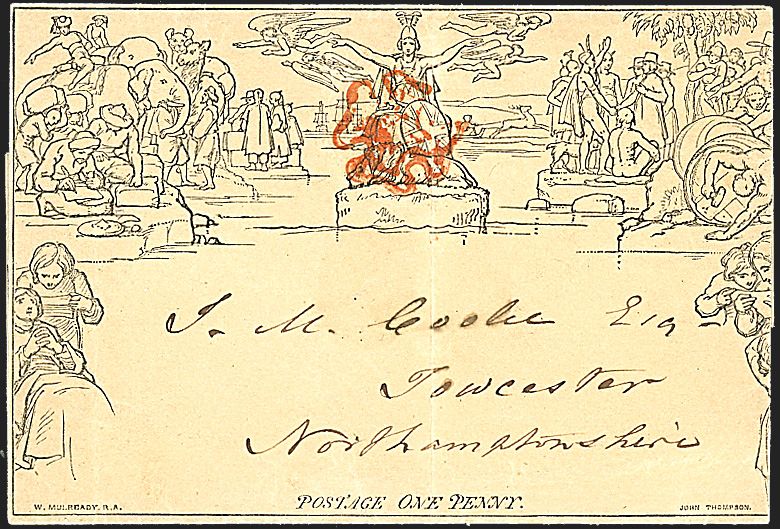 J. M. Cooke Esq
Towcester
Northamptonshire
W. MULREADY. R.A.
POSTAGE ONE PENNY.
JOHN THOMPSON.